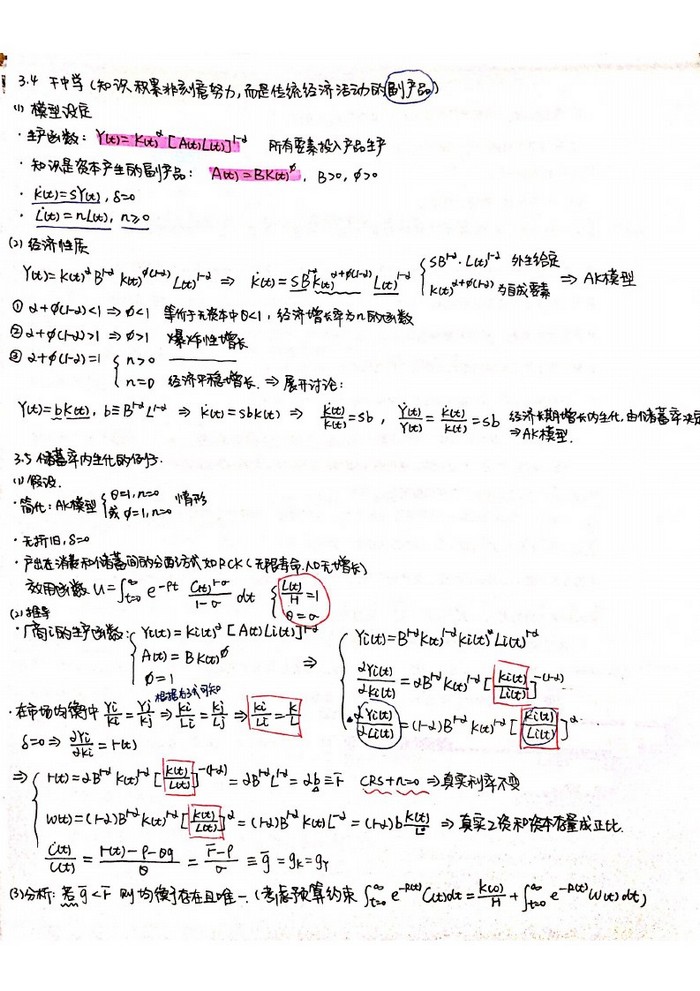 3.4 干中学(知识积累非刻意努力,而是传统经济活动的副产品)
(1) 模型设定
· 生产函数: Y(t)=K(t)^α[A(t)L(t)]^{1-α} 所有要素投入产品生产
· 知识是资本产生的副产品: A(t)=BK(t)^φ, B>0, φ>0
· K̇(t)=sY(t), δ=0
· L̇(t)=nL(t), n≥0
(2) 经济性质
Y(t)=K(t)^α B^{1-α} K(t)^{φ(1-α)} L(t)^{1-α} ⇒ K̇(t)=sB^{1-α}K(t)^{α+φ(1-α)}L(t)^{1-α} { sB^{1-α}·L(t)^{1-α} 外生给定
K(t)^{α+φ(1-α)} 为自成要素 ⇒ AK模型
① α+φ(1-α)<1 ⇒ φ<1 等价于无资本中θ<1, 经济增长率为n的函数
② α+φ(1-α)>1 ⇒ φ>1 爆炸性增长
③ α+φ(1-α)=1 { n>0
n=0 经济平稳增长. ⇒ 展开讨论:
Y(t)=bK(t), b≡B^{1-α}L^{1-α} ⇒ K̇(t)=sbK(t) ⇒ K̇(t)/K(t)=sb, Ẏ(t)/Y(t)=K̇(t)/K(t)=sb 经济长期增长内生化,由储蓄率决定
⇒AK模型.
3.5 储蓄率内生化的例子:
(1) 假设.
· 简化: AK模型 { θ=1, n=0
或 φ=1, n=0 情形
· 无折旧, δ=0
· 产出在消费和储蓄间的分配方式如RCK(无限寿命,人口无增长)
效用函数 U=∫_{t=0}^∞ e^{-ρt} C(t)^{1-σ}/(1-σ) dt { L(t)/H=1
θ=σ
(2) 推导
· 厂商i的生产函数: { Yi(t)=Ki(t)^α[A(t)Li(t)]^{1-α}
A(t)=BK(t)^φ
φ=1
⇒ { Yi(t)=B^{1-α}K(t)^{1-α}Ki(t)^α Li(t)^{1-α}
∂Yi(t)/∂Ki(t)=αB^{1-α}K(t)^{1-α}[Ki(t)/Li(t)]^{-(1-α)}
∂Yi(t)/∂Li(t)=(1-α)B^{1-α}K(t)^{1-α}[Ki(t)/Li(t)]^α
根据右式可知
· 在市场均衡中 Yi/Ki=Yj/Kj ⇒ Ki/Li=Kj/Lj ⇒ Ki/Li=K/L
δ=0 ⇒ ∂Yi/∂Ki=r(t)
⇒ { r(t)=αB^{1-α}K(t)^{1-α}[K(t)/L(t)]^{-(1-α)}=αB^{1-α}L^{1-α}=αb≡r̄ CRS+n=0 ⇒真实利率不变
w(t)=(1-α)B^{1-α}K(t)^{1-α}[K(t)/L(t)]^α=(1-α)B^{1-α}K(t)L^{-α}=(1-α)b K(t)/L ⇒ 真实工资和资本存量成正比.
Ċ(t)/C(t)=(r(t)-ρ-θg)/θ=(r̄-ρ)/σ≡ḡ=gK=gY
(3)分析: 若ḡ<r̄ 则均衡存在且唯一.(考虑预算约束 ∫_{t=0}^∞ e^{-R(t)}C(t)dt=K(0)/H+∫_{t=0}^∞ e^{-R(t)}W(t)dt)